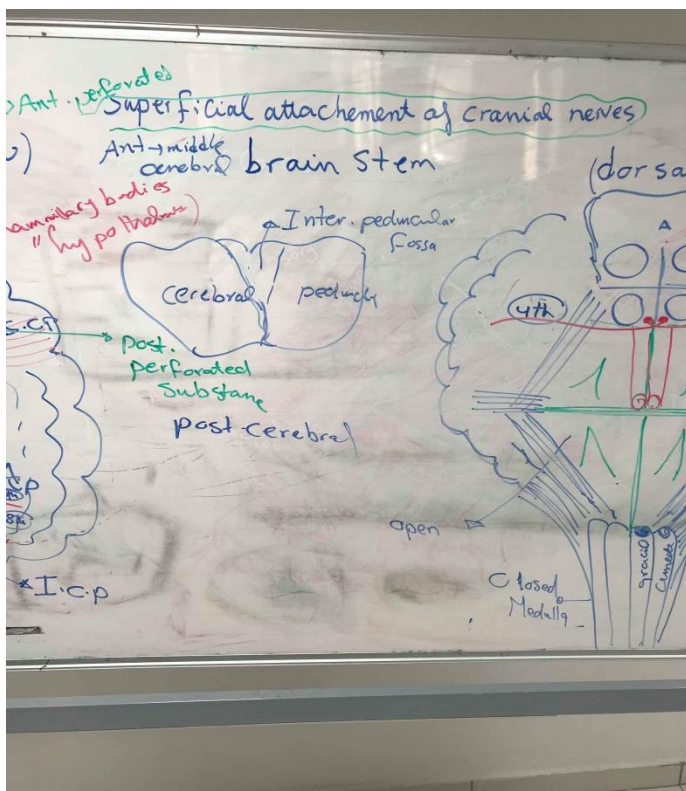 Ant. perforated
Superficial attachement of cranial nerves
Ant → middle
cerebral
brain stem
(dorsa
mammillary bodies
" hypothalmus)
Inter. peduncular
fossa
cerebral
peduncle
4th
A
S.CP
Post.
perforated
Substane
post cerebral
open
gracil
Cuneate
Closed
Medulla
I.C.P